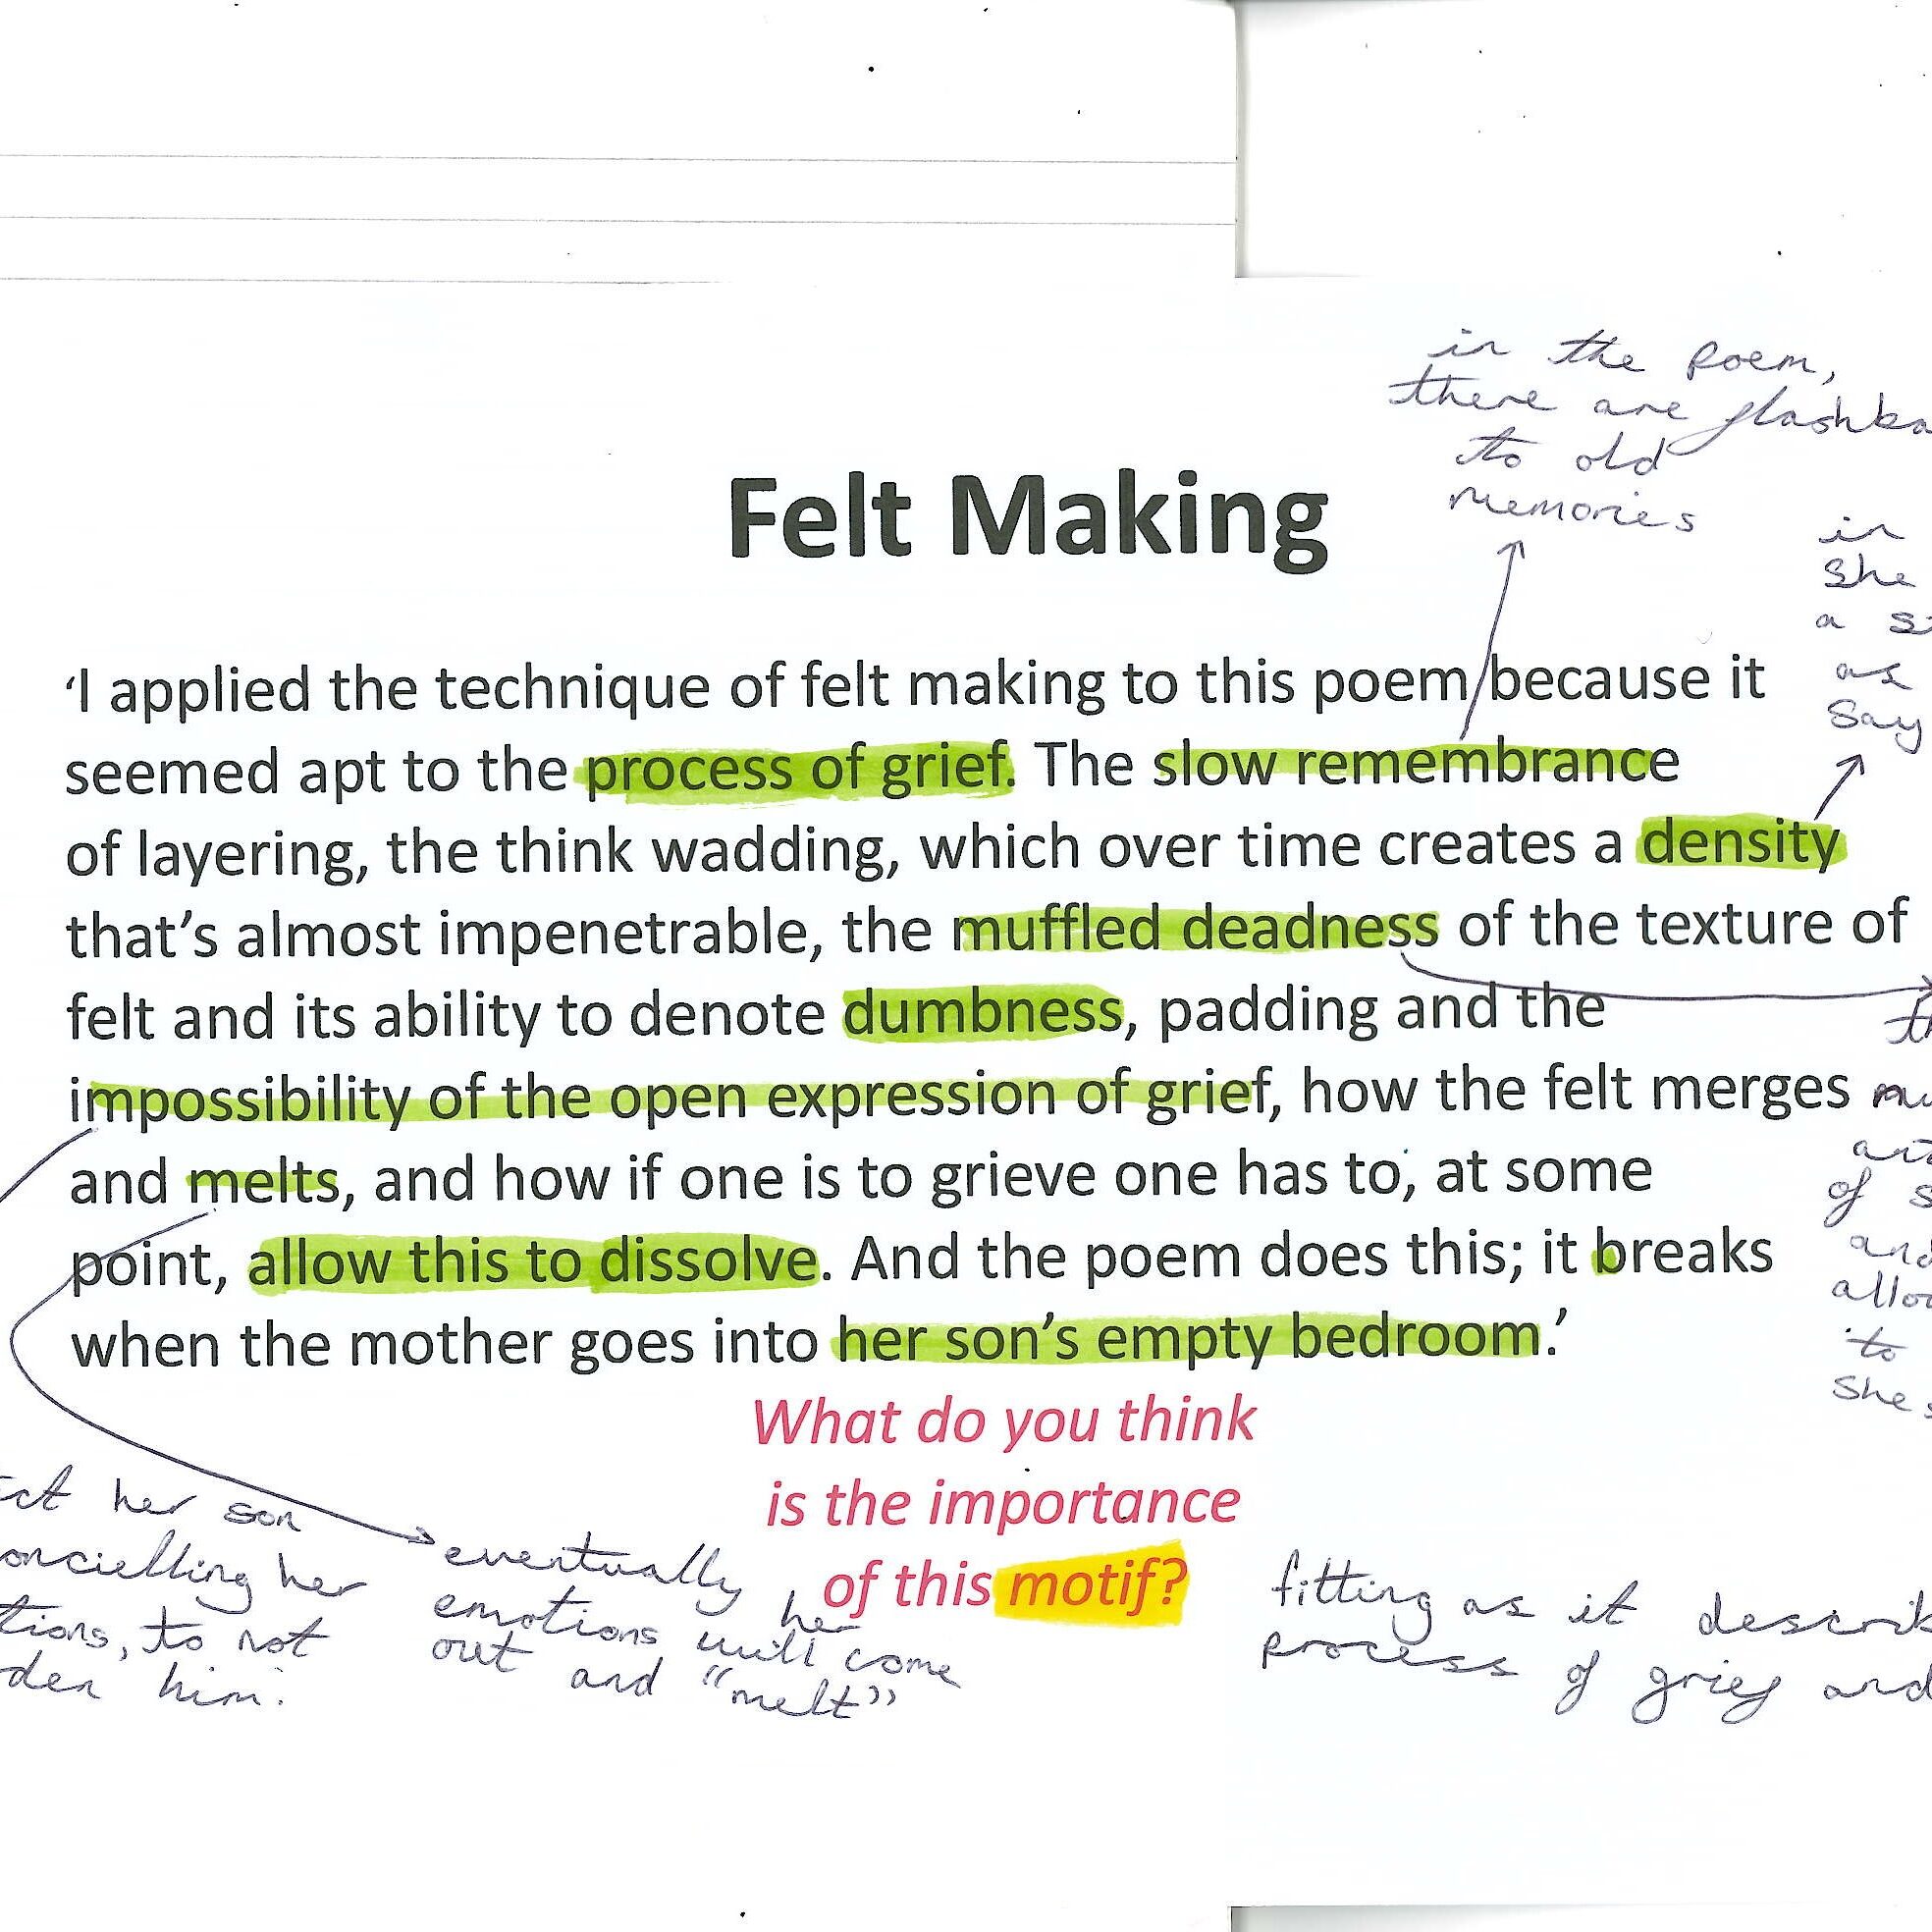 in the poem,
there are flashba
to old
memories
Felt Making
in
She
a s
as
say
'I applied the technique of felt making to this poem because it
seemed apt to the process of grief. The slow remembrance
of layering, the think wadding, which over time creates a density
that's almost impenetrable, the muffled deadness of the texture of
felt and its ability to denote dumbness, padding and the
impossibility of the open expression of grief, how the felt merges
and melts, and how if one is to grieve one has to, at some
point, allow this to dissolve. And the poem does this; it breaks
when the mother goes into her son's empty bedroom.'
of s
and
allow
to
she s
What do you think
is the importance
of this motif?
ct her son
oncielling her
tions, to not
den him.
eventually her
emotions will come
out and "melt"
fitting as it describ
process of grief and